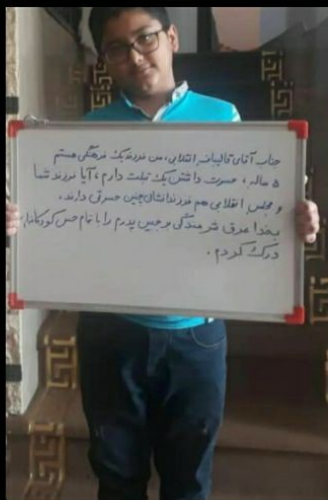 جناب آقای قالیباف انقلابی، من فرزند یک فرهنگی هستم
۵ ساله، حسرت داشتن یک تبلت دارم، آیا فرزند شما
و مجلس انقلابی هم فرزندانشان چنین حسرتی دارند.
بخدا عرق شرمندگی بر جبین پدرم را با تمام حس کودکانه‌ام
درک کردم.